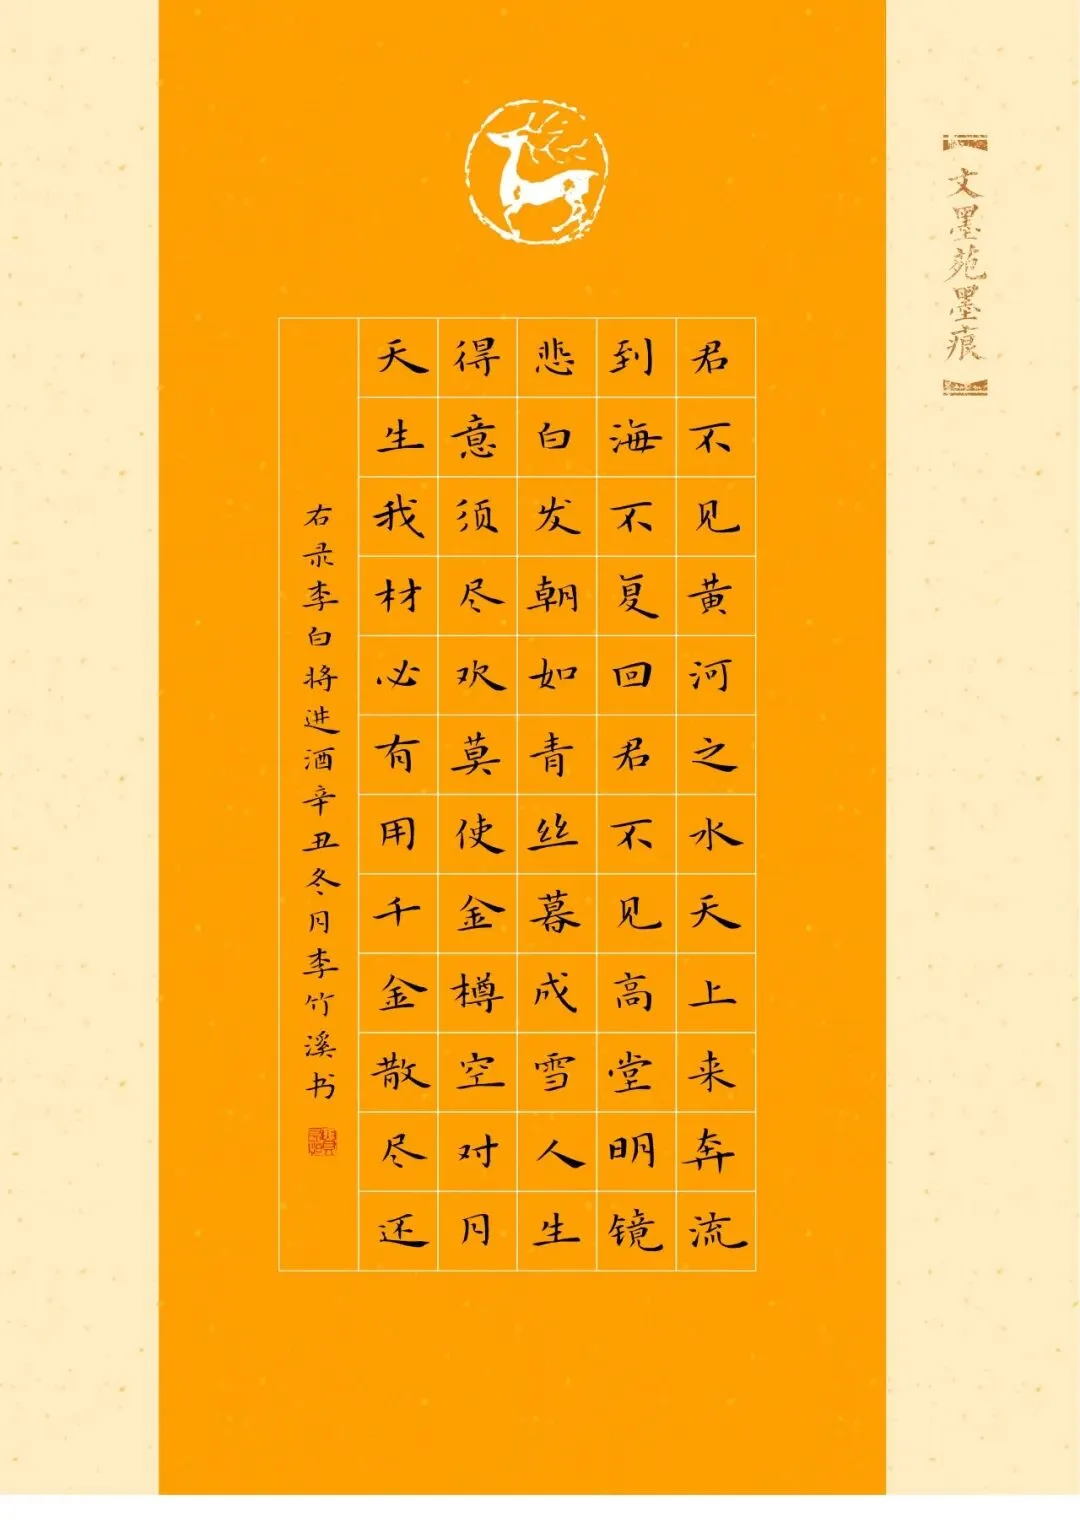 君不见黄河之水天上来奔流
到海不复回君不见高堂明镜
悲白发朝如青丝暮成雪人生
得意须尽欢莫使金樽空对月
天生我材必有用千金散尽还
右录李白将进酒辛丑冬月李竹溪书
【文墨苑墨痕】